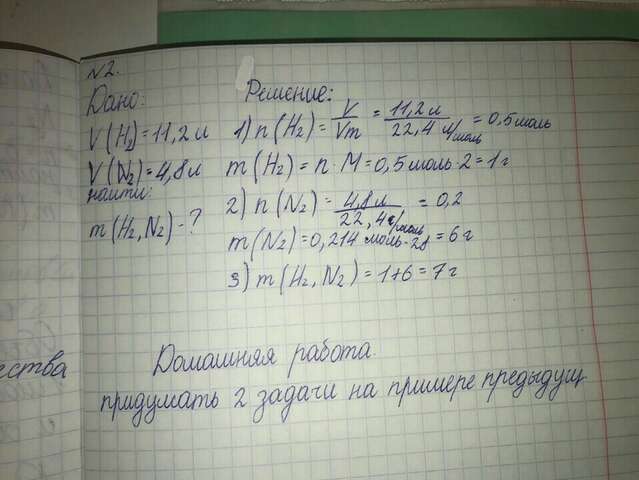 N2.
Дано:
V(H2)=11,2 л
V(N2)=4,8 л
найти:
m(H2,N2)-?
Решение:
1) n(H2) = V/Vm = 11,2 л/22,4 л/моль = 0,5 моль
m(H2) = n · M = 0,5 моль · 2 = 1 г
2) n(N2) = 4,8 л/22,4 л/моль = 0,2
m(N2) = 0,214 моль · 28 = 6 г
3) m(H2,N2) = 1+6 = 7 г
ества
Домашняя работа.
придумать 2 задачи на примере предыдущ